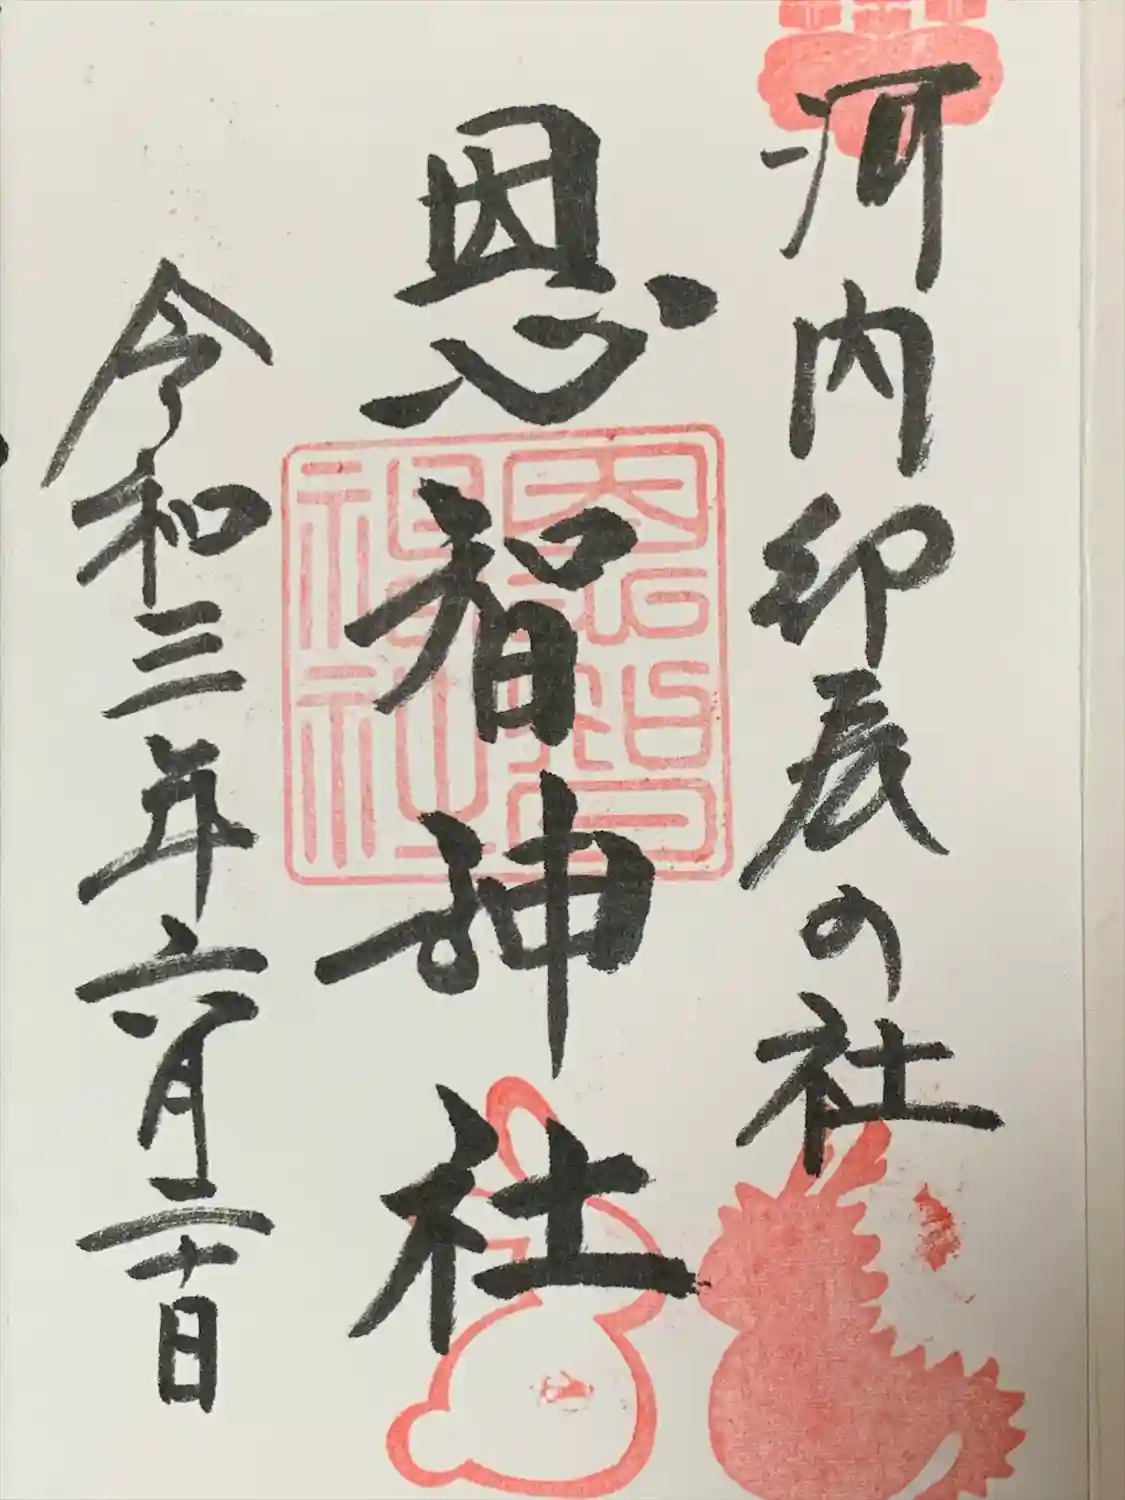 河内卯辰の社
恩智神社
令和三年六月二十日
恩智
神社